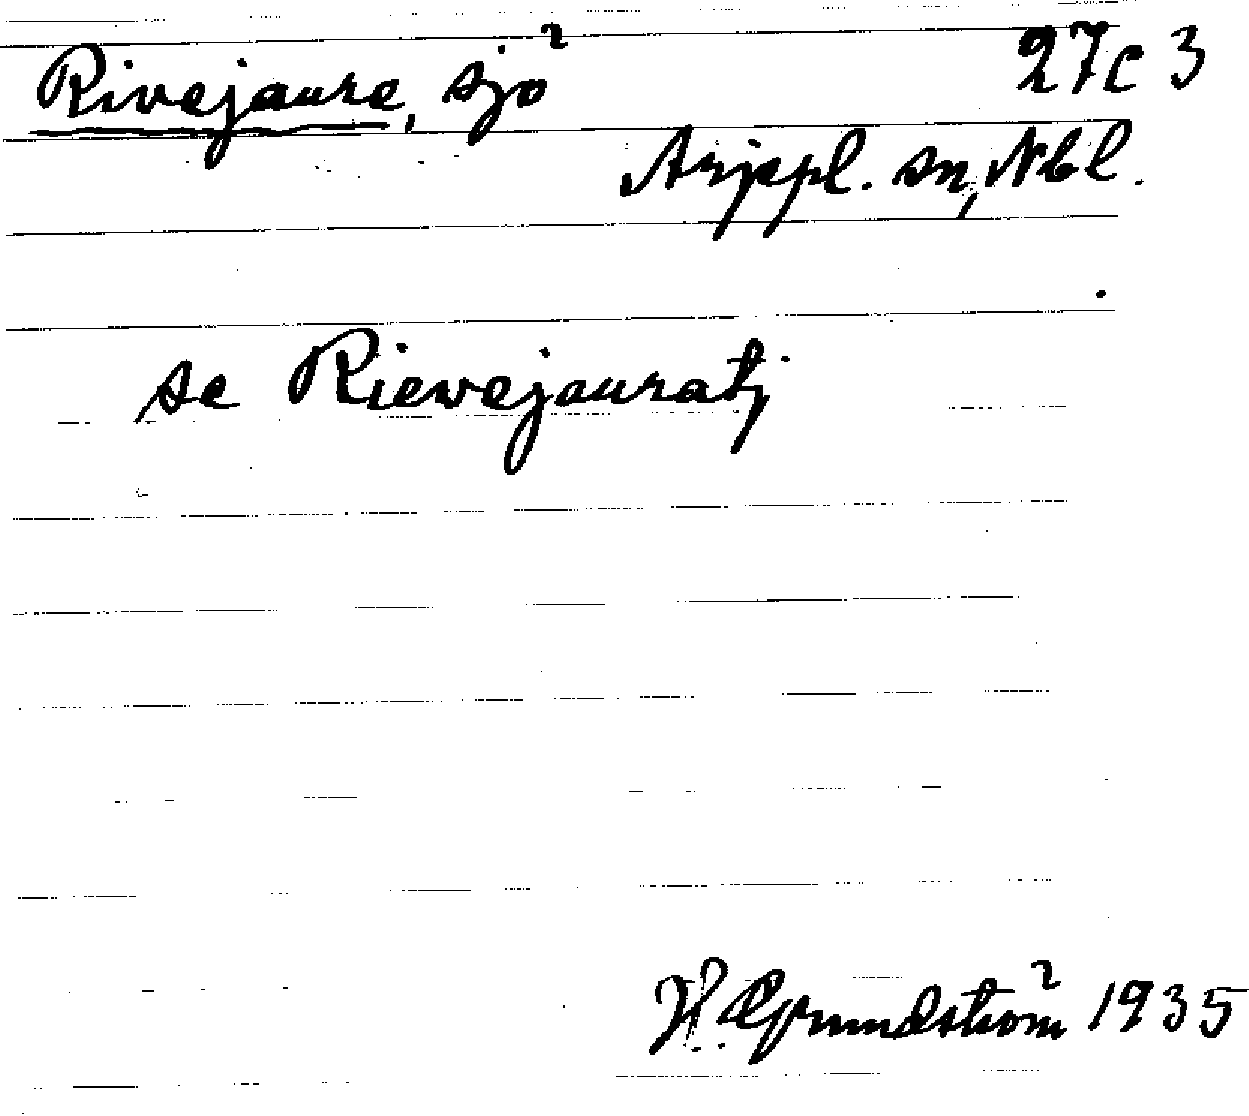 Rivejaure, sjö 27c 3
Arjepl. sn, Nbl.
se Rievejauratj
H. Grundström 1935